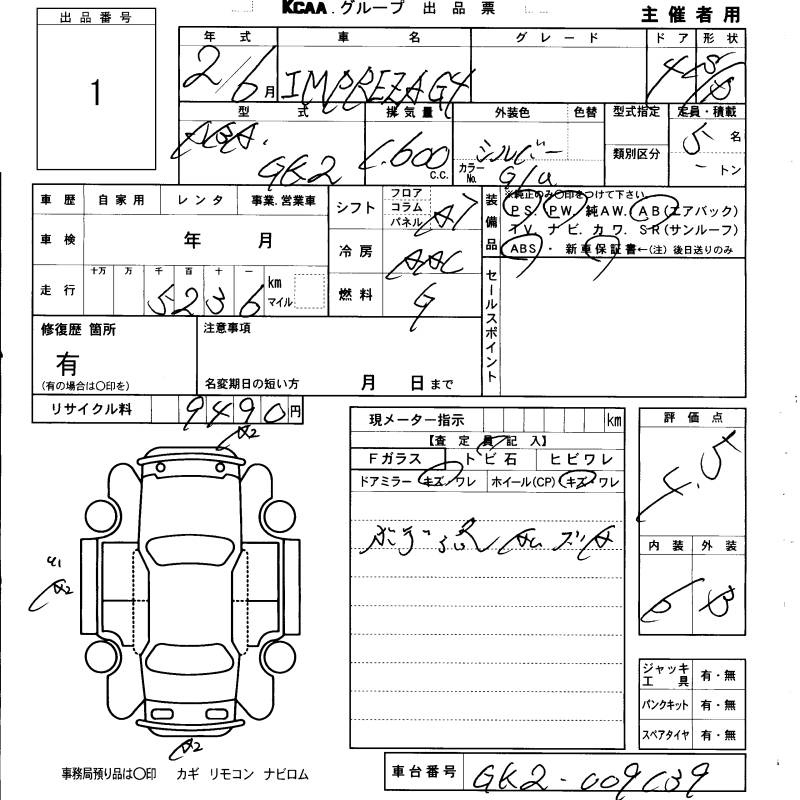 KCAA.グループ 出品票
主催者用
出品番号
1
年式 車名 グレード ドア 形状
2/6月 IMPREZA G4 4
型式 排気量 外装色 色替 型式指定 定員・積載
GK2 1.600 c.c. シルバー カラーNo. G1U 類別区分 5名 - トン
車歴 自家用 レンタ 事業.営業車
車検 年 月
走行 十万 万 千 百 十 一 km マイル
5236
シフト フロア コラム パネル AT
冷房 AAC
燃料 G
装備品
※純正のみ〇印をつけて下さい。
PS. PW. 純AW. AB(エアバック)
TV. ナビ. カワ. SR(サンルーフ)
ABS・新車保証書←(注)後日送りのみ
セールスポイント
修復歴 箇所
有
(有の場合は〇印を)
注意事項
名変期日の短い方 月 日まで
リサイクル料 9490円
現メーター指示 km
【査定員記入】
Fガラス トビ石 ヒビワレ
ドアミラー キズ・ワレ ホイール(CP) キズ・ワレ
評価点
4.5
内装 外装
B
A2
A2
A2
ジャッキ工具 有・無
パンクキット 有・無
スペアタイヤ 有・無
事務局預り品は〇印 カギ リモコン ナビロム
車台番号 GK2-009039